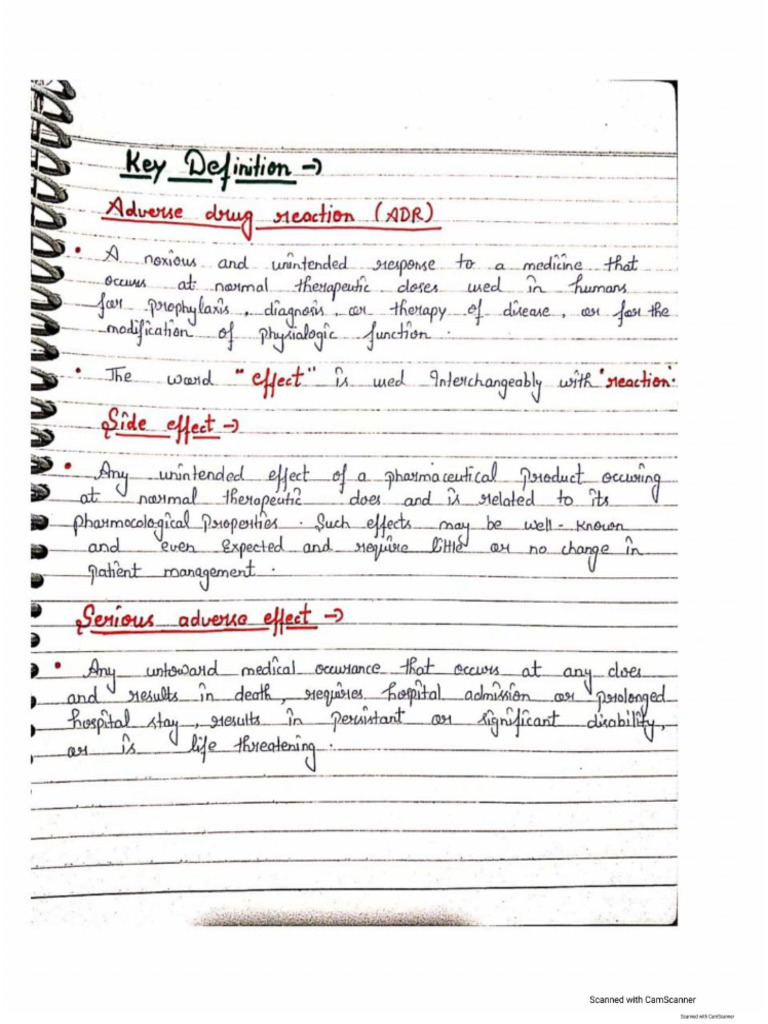 Key Definition →
Adverse drug reaction (ADR)
• A noxious and unintended response to a medicine that
occurs at normal therapeutic doses used in humans
for prophylaxis, diagnosis, or therapy of disease, or for the
modification of physialogic function.
• The word "effect" is used Interchangeably with "reaction".
Side effect →
• Any unintended effect of a pharmaceutical Product occuring
at normal therapeutic does and is related to its
pharmocological Properties. Such effects may be well-known
and even Expected and require little or no change in
patient management.
Serious adverse effect →
• Any untoward medical occurance that occurs at any does
and results in death, requires hospital admission or prolonged
hospital stay, results in persistant or significant disability,
or is life threatening.
Scanned with CamScanner
Scanned with CamScanner